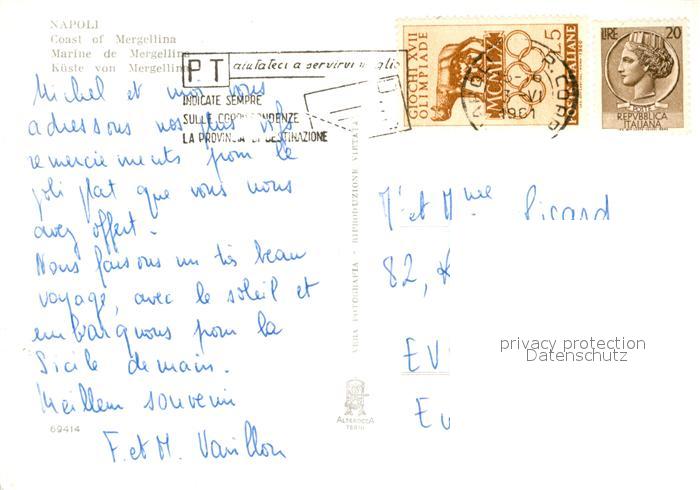 NAPOLI
Coast of Mergellina
Marine de Mergellina
Küste von Mergellin
PT aiutateci a servirvi meglio
INDICATE SEMPRE
SULLE CORRISPONDENZE
LA PROVINCIA DI DESTINAZIONE
GIOCHI XVII OLIMPIADE
MCMLX
1961
LIRE 20
POSTE
REPVBBLICA
ITALIANA
Michel et moi vous
adressons nos plus vifs
remerciements pour le
joli plat que vous nous
avez offert.
Nous faisons un très beau
voyage, avec le soleil et
embarquons pour la
Sicile demain.
Meilleur souvenir
F. et M. Varillon
69414
VERA FOTOGRAFIA - RIPRODUZIONE VIETATA
ALTEROCCA
TERNI
M et Mme Picard
82,
EV
Ev
privacy protection
Datenschutz